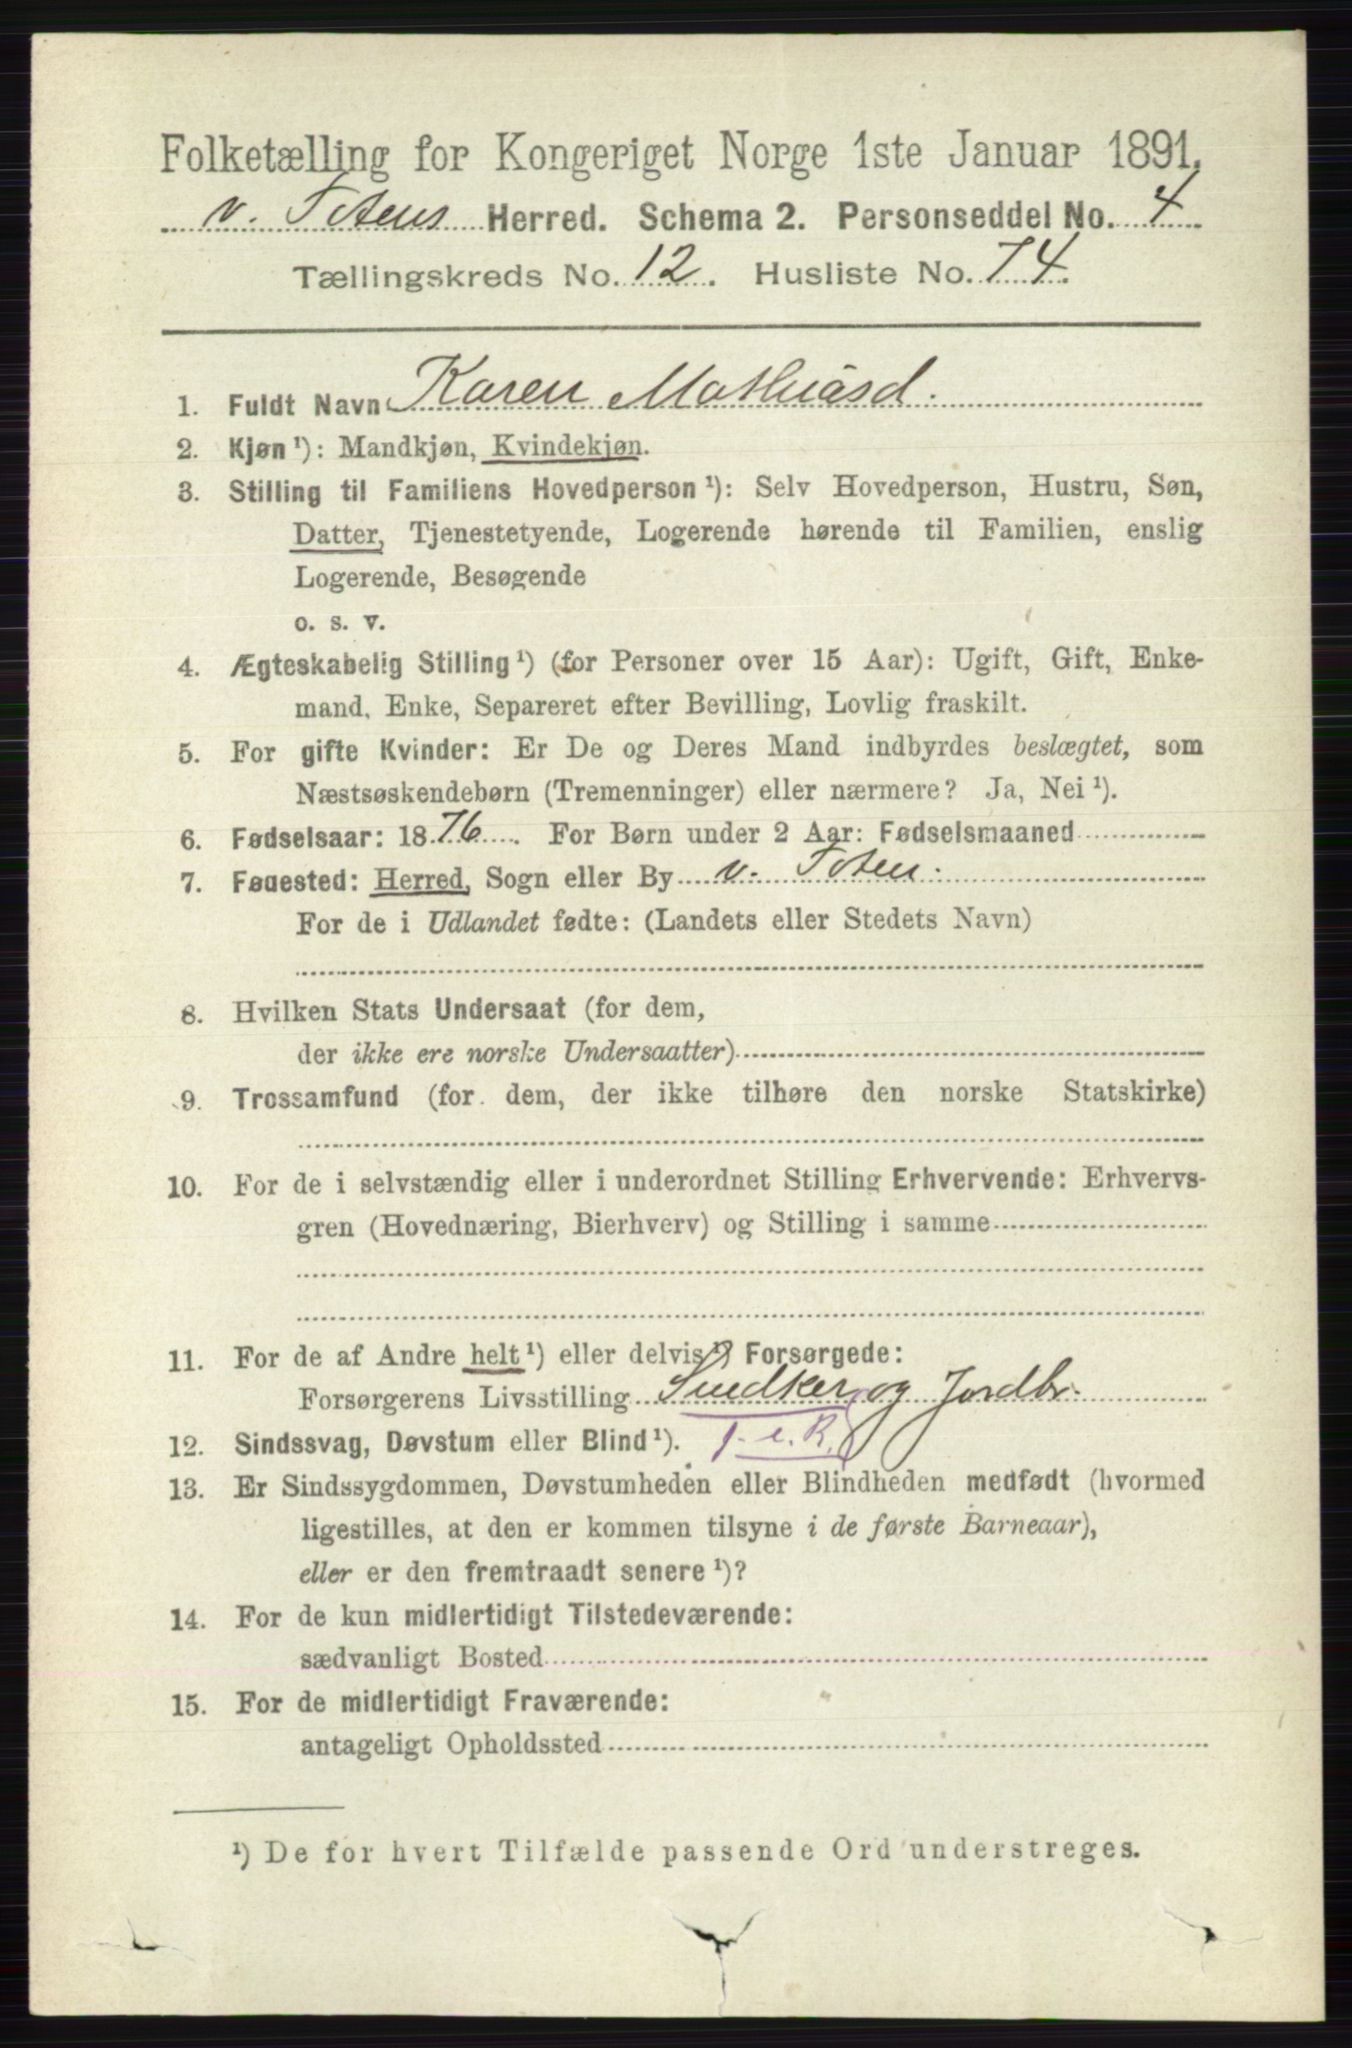 Folketælling for Kongeriget Norge 1ste Januar 1891.
v. Totens Herred. Schema 2. Personseddel No. 4
Tællingskreds No. 12. Husliste No. 74.
1. Fuldt Navn Karen Mathiasd.
2. Kjøn ¹): Mandkjøn, Kvindekjøn.
3. Stilling til Familiens Hovedperson ¹): Selv Hovedperson, Hustru, Søn,
Datter, Tjenestetyende, Logerende hørende til Familien, enslig
Logerende, Besøgende
o. s. v.
4. Ægteskabelig Stilling ¹) (for Personer over 15 Aar): Ugift, Gift, Enke-
mand, Enke, Separeret efter Bevilling, Lovlig fraskilt.
5. For gifte Kvinder: Er De og Deres Mand indbyrdes beslægtet, som
Næstsøskendebørn (Tremenninger) eller nærmere? Ja, Nei ¹).
6. Fødselsaar: 1876. For Børn under 2 Aar: Fødselsmaaned
7. Føuested: Herred, Sogn eller By v. Toten.
For de i Udlandet fødte: (Landets eller Stedets Navn)
8. Hvilken Stats Undersaat (for dem,
der ikke ere norske Undersaatter)
9. Trossamfund (for dem, der ikke tilhøre den norske Statskirke)
10. For de i selvstændig eller i underordnet Stilling Erhvervende: Erhvervs-
gren (Hovednæring, Bierhverv) og Stilling i samme
11. For de af Andre helt ¹) eller delvis ¹) Forsørgede:
Forsørgerens Livsstilling Snedker og Jordbr.
12. Sindssvag, Døvstum eller Blind ¹).
13. Er Sindssygdommen, Døvstumheden eller Blindheden medfødt (hvormed
ligestilles, at den er kommen tilsyne i de første Barneaar),
eller er den fremtraadt senere ¹)?
14. For de kun midlertidigt Tilstedeværende:
sædvanligt Bosted
15. For de midlertidigt Fraværende:
antageligt Opholdssted
¹) De for hvert Tilfælde passende Ord understreges.